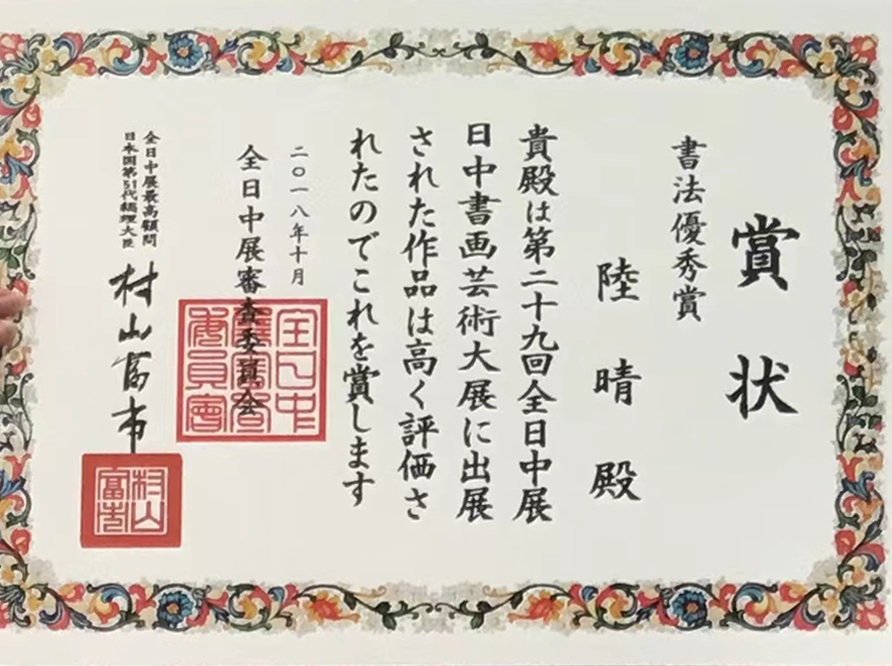 賞状
書法優秀賞
陸晴殿
貴殿は第二十九回全日中展
日中書画芸術大展に出展
された作品は高く評価さ
れたのでこれを賞します
二〇一八年十月
全日中展審査委員会
全日中展審査委員會
全日中展最高顧問
日本国第51代総理大臣
村山富市
村山富市